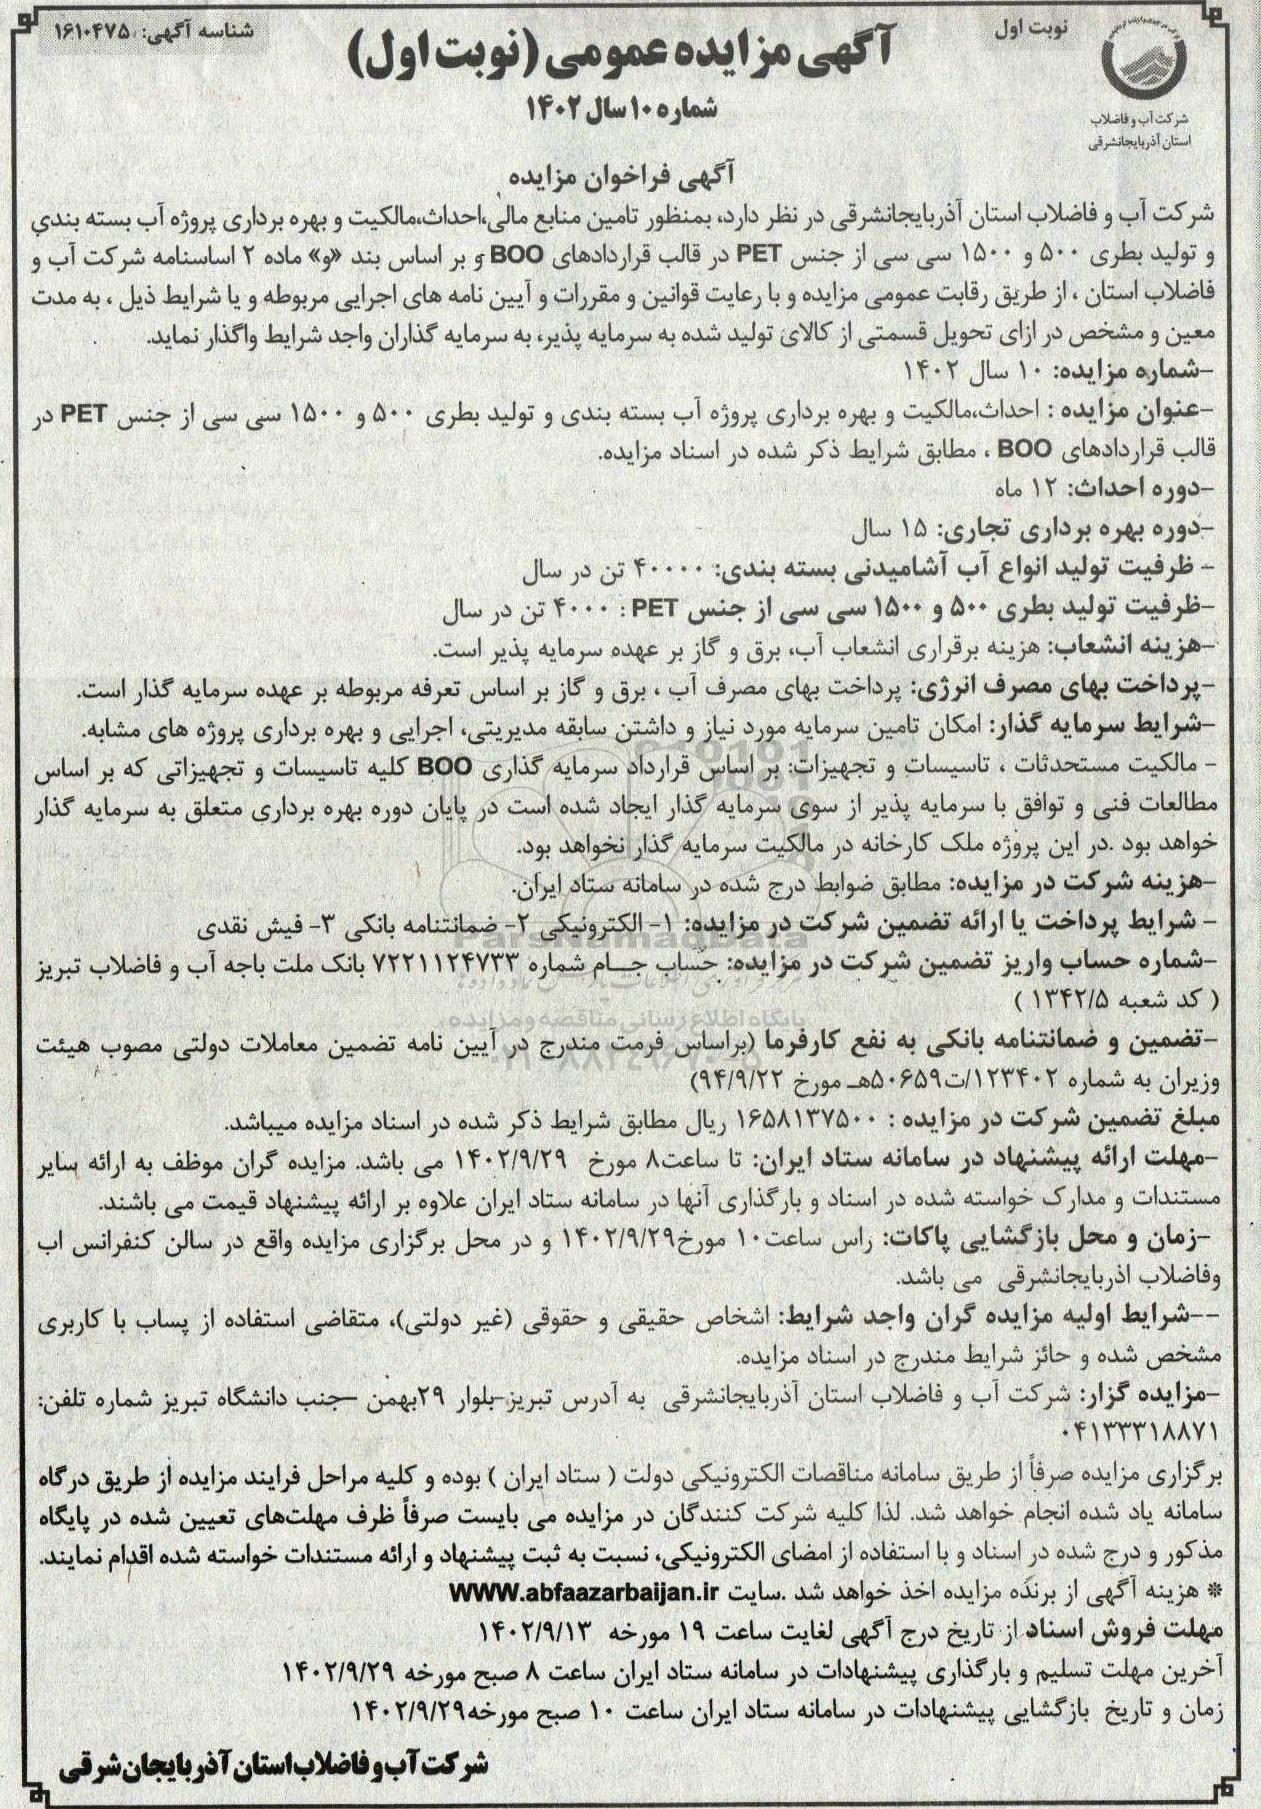 شناسه آگهی: ۱۶۱۰۴۷۵
نوبت اول
آگهی مزایده عمومی (نوبت اول)
شماره ۱۰ سال ۱۴۰۲
شرکت آب و فاضلاب
استان آذربایجانشرقی
آگهی فراخوان مزایده
شرکت آب و فاضلاب استان آذربایجانشرقی در نظر دارد، بمنظور تامین منابع مالی،احداث،مالکیت و بهره برداری پروژه آب بسته بندی
و تولید بطری ۵۰۰ و ۱۵۰۰ سی سی از جنس PET در قالب قراردادهای BOO و بر اساس بند «و» ماده ۲ اساسنامه شرکت آب و
فاضلاب استان ، از طریق رقابت عمومی مزایده و با رعایت قوانین و مقررات و آیین نامه های اجرایی مربوطه و یا شرایط ذیل ، به مدت
معین و مشخص در ازای تحویل قسمتی از کالای تولید شده به سرمایه پذیر، به سرمایه گذاران واجد شرایط واگذار نماید.
-شماره مزایده: ۱۰ سال ۱۴۰۲
-عنوان مزایده : احداث،مالکیت و بهره برداری پروژه آب بسته بندی و تولید بطری ۵۰۰ و ۱۵۰۰ سی سی از جنس PET در
قالب قراردادهای BOO ، مطابق شرایط ذکر شده در اسناد مزایده.
-دوره احداث: ۱۲ ماه
-دوره بهره برداری تجاری: ۱۵ سال
- ظرفیت تولید انواع آب آشامیدنی بسته بندی: ۴۰۰۰۰ تن در سال
-ظرفیت تولید بطری ۵۰۰ و ۱۵۰۰ سی سی از جنس PET : ۴۰۰۰ تن در سال
-هزینه انشعاب: هزینه برقراری انشعاب آب، برق و گاز بر عهده سرمایه پذیر است.
-پرداخت بهای مصرف انرژی: پرداخت بهای مصرف آب ، برق و گاز بر اساس تعرفه مربوطه بر عهده سرمایه گذار است.
-شرایط سرمایه گذار: امکان تامین سرمایه مورد نیاز و داشتن سابقه مدیریتی، اجرایی و بهره برداری پروژه های مشابه.
- مالکیت مستحدثات ، تاسیسات و تجهیزات: بر اساس قرارداد سرمایه گذاری BOO کلیه تاسیسات و تجهیزاتی که بر اساس
مطالعات فنی و توافق با سرمایه پذیر از سوی سرمایه گذار ایجاد شده است در پایان دوره بهره برداری متعلق به سرمایه گذار
خواهد بود .در این پروژه ملک کارخانه در مالکیت سرمایه گذار نخواهد بود.
-هزینه شرکت در مزایده: مطابق ضوابط درج شده در سامانه ستاد ایران.
- شرایط پرداخت یا ارائه تضمین شرکت در مزایده: ۱- الکترونیکی ۲- ضمانتنامه بانکی ۳- فیش نقدی
ParsNamadData
-شماره حساب واریز تضمین شرکت در مزایده: حساب جــام شماره ۷۲۲۱۱۲۴۷۳۳ بانک ملت باجه آب و فاضلاب تبریز
( کد شعبه ۱۳۴۲/۵ )
پایگاه اطلاع رسانی مناقصه و مزایده
-تضمین و ضمانتنامه بانکی به نفع کارفرما (براساس فرمت مندرج در آیین نامه تضمین معاملات دولتی مصوب هیئت
وزیران به شماره ۱۲۳۴۰۲/ت۵۰۶۵۹هـ مورخ ۹۴/۹/۲۲)
مبلغ تضمین شرکت در مزایده : ۱۶۵۸۱۳۷۵۰۰ ریال مطابق شرایط ذکر شده در اسناد مزایده میباشد.
-مهلت ارائه پیشنهاد در سامانه ستاد ایران: تا ساعت۸ مورخ ۱۴۰۲/۹/۲۹ می باشد. مزایده گران موظف به ارائه سایر
مستندات و مدارک خواسته شده در اسناد و بارگذاری آنها در سامانه ستاد ایران علاوه بر ارائه پیشنهاد قیمت می باشند.
-زمان و محل بازگشایی پاکات: راس ساعت۱۰ مورخ۱۴۰۲/۹/۲۹ و در محل برگزاری مزایده واقع در سالن کنفرانس اب
وفاضلاب اذربایجانشرقی می باشد.
--شرایط اولیه مزایده گران واجد شرایط: اشخاص حقیقی و حقوقی (غیر دولتی)، متقاضی استفاده از پساب با کاربری
مشخص شده و حائز شرایط مندرج در اسناد مزایده.
-مزایده گزار: شرکت آب و فاضلاب استان آذربایجانشرقی به آدرس تبریز-بلوار ۲۹بهمن –جنب دانشگاه تبریز شماره تلفن:
۰۴۱۳۳۳۱۸۸۷۱
برگزاری مزایده صرفاً از طریق سامانه مناقصات الکترونیکی دولت ( ستاد ایران ) بوده و کلیه مراحل فرایند مزایده از طریق درگاه
سامانه یاد شده انجام خواهد شد. لذا کلیه شرکت کنندگان در مزایده می بایست صرفاً ظرف مهلت‌های تعیین شده در پایگاه
مذکور و درج شده در اسناد و با استفاده از امضای الکترونیکی، نسبت به ثبت پیشنهاد و ارائه مستندات خواسته شده اقدام نمایند.
* هزینه آگهی از برنده مزایده اخذ خواهد شد .سایت WWW.abfaazarbaijan.ir
مهلت فروش اسناد از تاریخ درج آگهی لغایت ساعت ۱۹ مورخه ۱۴۰۲/۹/۱۳
آخرین مهلت تسلیم و بارگذاری پیشنهادات در سامانه ستاد ایران ساعت ۸ صبح مورخه ۱۴۰۲/۹/۲۹
زمان و تاریخ بازگشایی پیشنهادات در سامانه ستاد ایران ساعت ۱۰ صبح مورخه۱۴۰۲/۹/۲۹
شرکت آب و فاضلاب استان آذربایجان شرقی